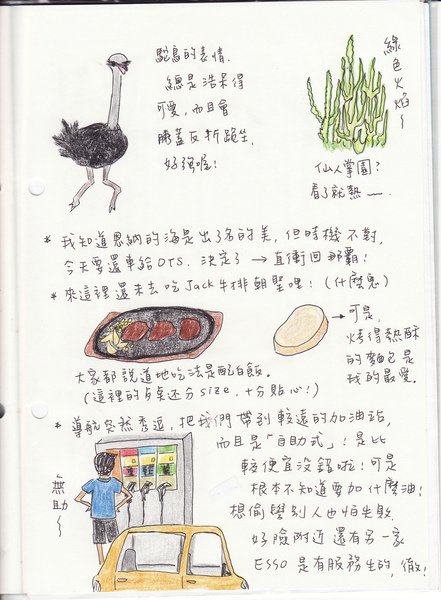 鴕鳥的表情
總是浩呆得
可愛,而且會
膝蓋反折跪坐
好強喔!
綠色火焰~
仙人掌園?
看了就熱——
* 我知道恩納的海是出了名的美,但時機不對,
今天要還車給OTS. 決定了→直衝回那霸!
* 來這裡還未去吃Jack牛排朝聖哩!(什麼鬼)
→可是,
烤得熱酥
的麵包是
我的最愛。
大家都說道地吃法是配白飯。
(這裡的桌还分size,十分貼心!)
* 導航突然秀逗,把我們帶到較遠的加油站,
而且是「自助式」!是比
較便宜沒錯啦!可是
根本不知道要加什麼油!
想偷學別人也怕失敗
好險附近還有另一家
ESSO是有服務生的,徹!
無助~